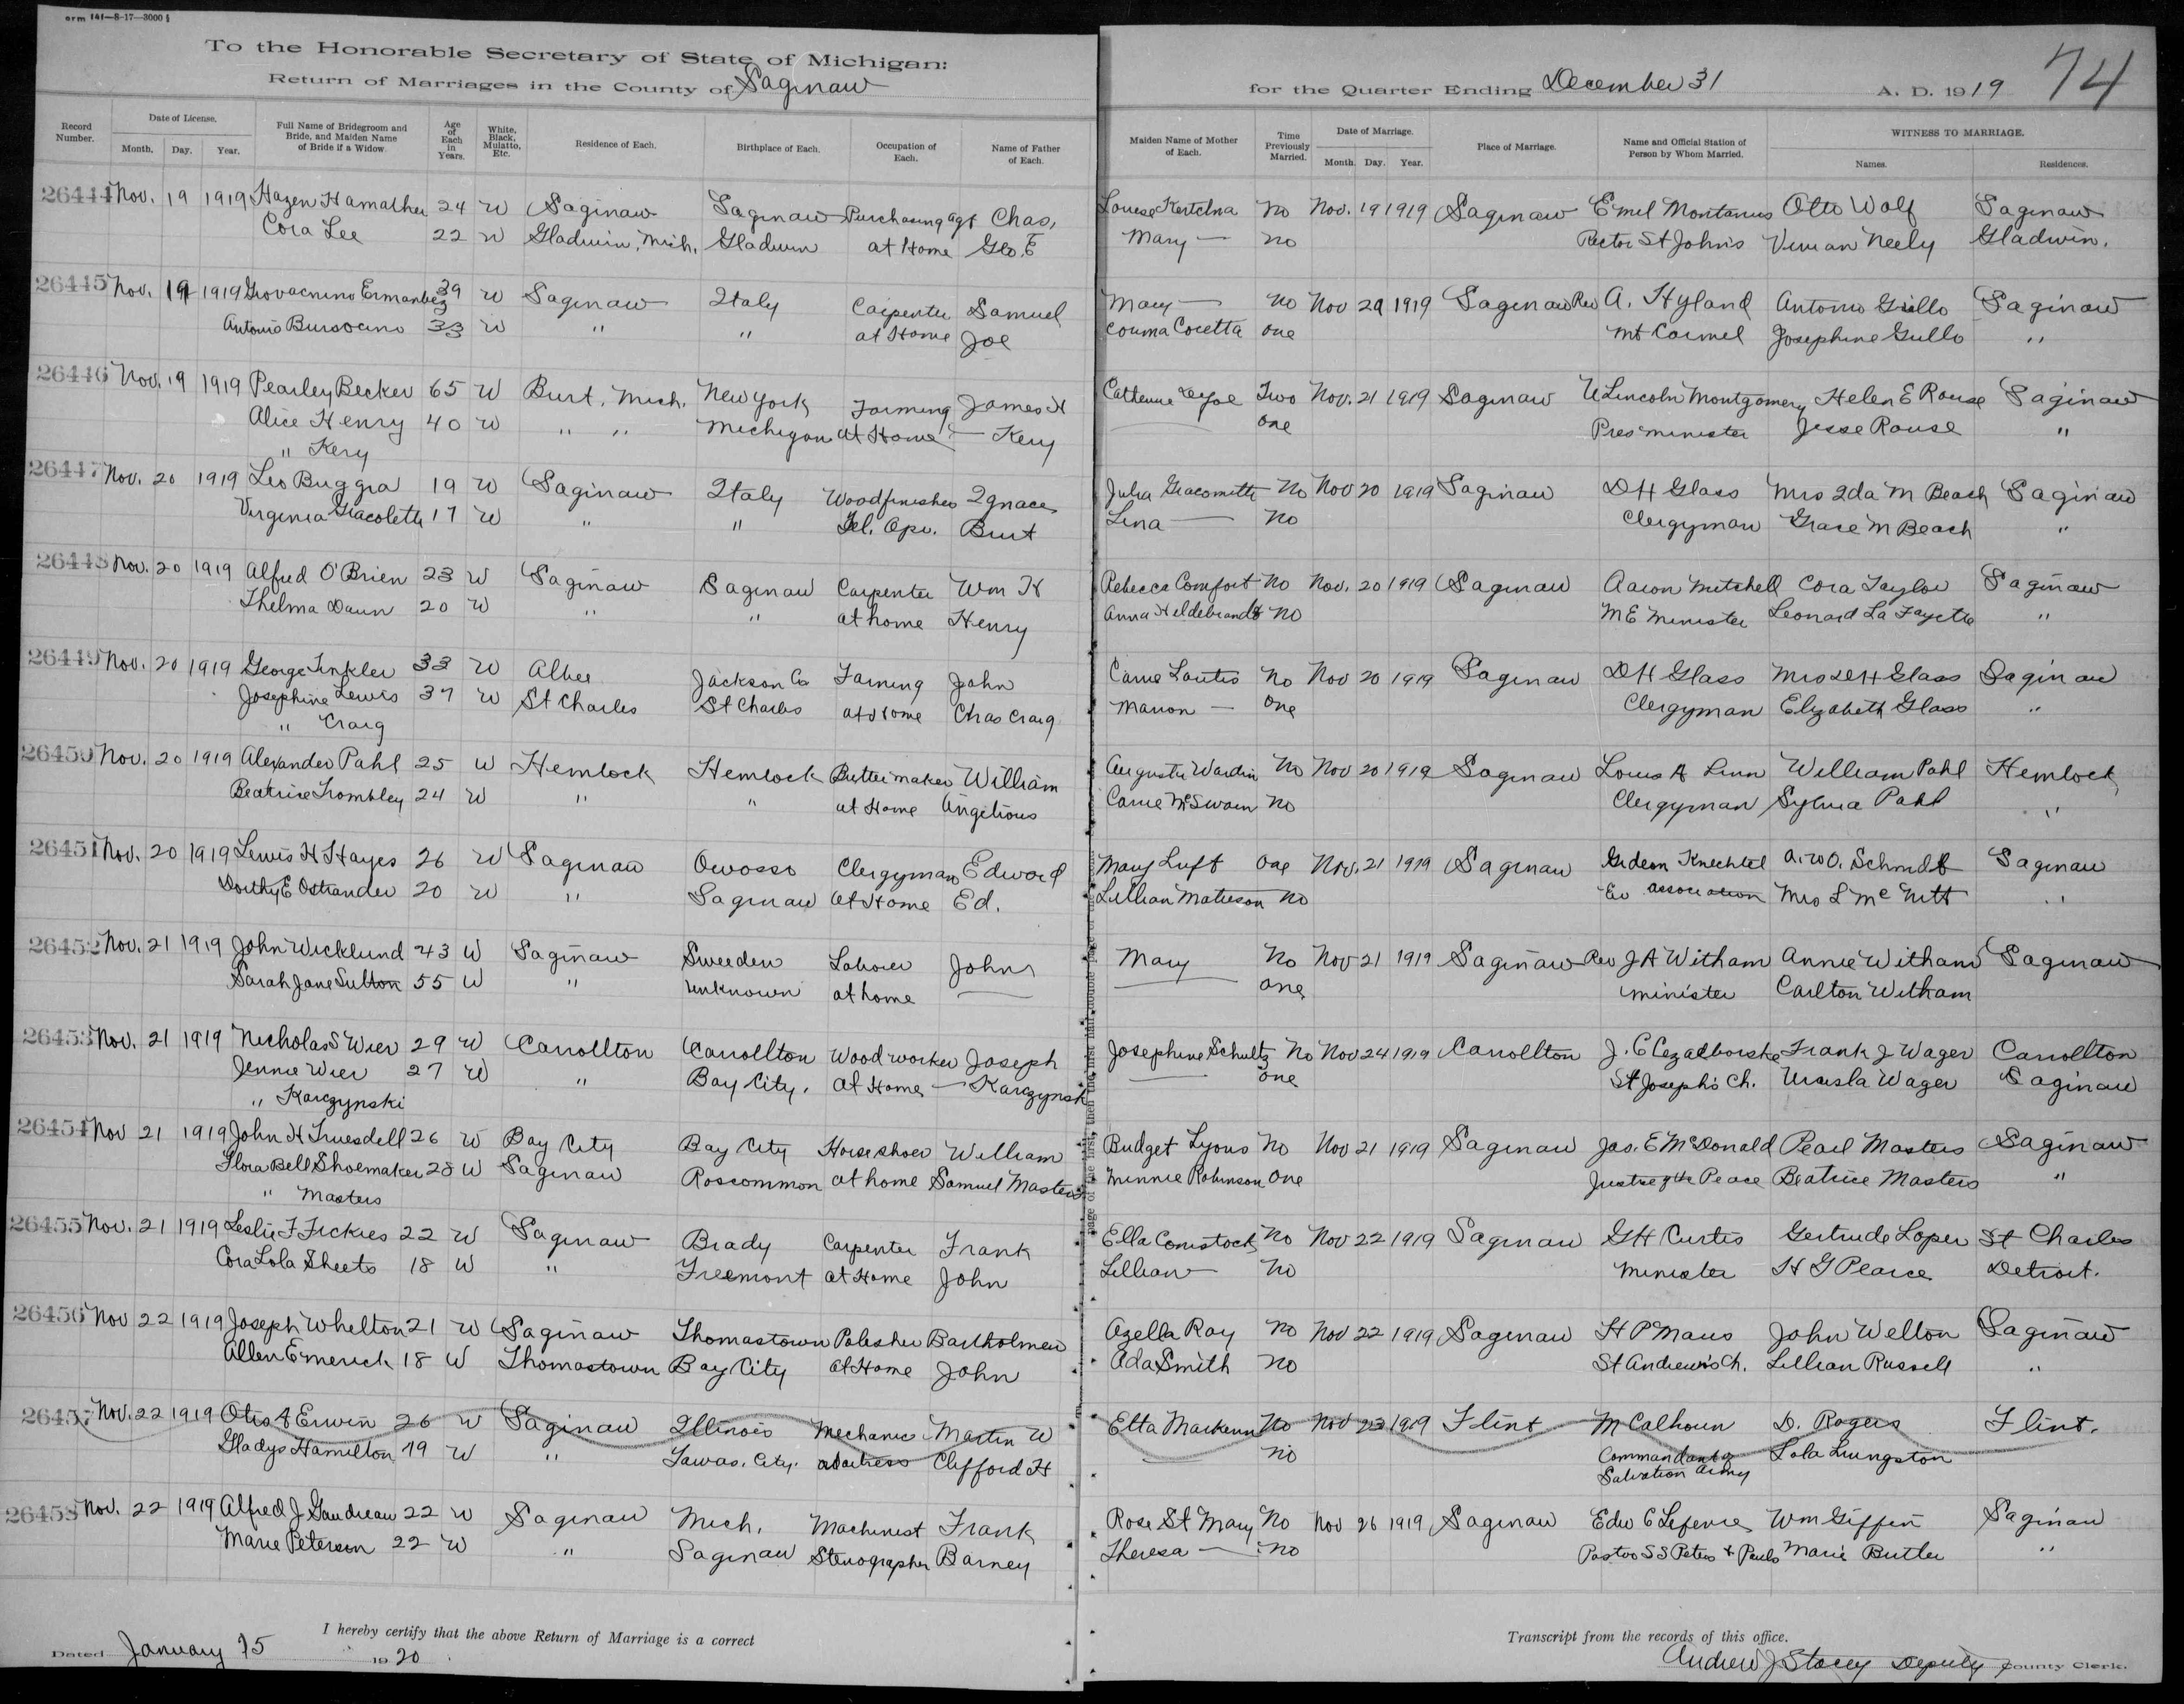 orm 141—8-17—3000
To the Honorable Secretary of State of Michigan:
Return of Marriages in the County of Saginaw
for the Quarter Ending December 31 A. D. 1919 74
Record Number. Date of License. Month. Day. Year. Full Name of Bridegroom and Bride, and Maiden Name of Bride if a Widow. Age of Each in Years. White, Black, Mulatto, Etc. Residence of Each. Birthplace of Each. Occupation of Each. Name of Father of Each. Maiden Name of Mother of Each. Time Previously Married. Date of Marriage. Month. Day. Year. Place of Marriage. Name and Official Station of Person by Whom Married. WITNESS TO MARRIAGE. Names. Residences.
26444 Nov. 19 1919 Hazen Hamather 24 W Saginaw Saginaw Purchasing Agt Chas. Louese No Nov. 19 1919 Saginaw Emel Montanus Otto Wolf Saginaw
Cora Lee 22 W Gladwin, Mich. Gladwin at Home Geo. E Mary — no Rector St Johns Vivian Neely Gladwin.
26445 Nov. 19 1919 39 W Saginaw Italy Carpenter Samuel Mary — No Nov 29 1919 Saginaw Rev A. Hyland Antonio Gullo Saginaw
Antonio 33 W " " at Home Joe Cocetta one Mt Carmel Josephine Gullo "
26446 Nov. 19 1919 Pearley Becker 65 W Burt, Mich. New York Farming James H Two Nov. 21 1919 Saginaw U Lincoln Montgomery Helen E Rouse Saginaw
Alice Henry 40 W " " Michigan at Home — Kery — one Pres minister Jesse Rouse "
" Kery
26447 Nov. 20 1919 Leo Buggra 19 W Saginaw Italy Woodfinisher Ignace Julia Giacomitti No Nov 20 1919 Saginaw D H Glass Mrs Ida M Beach Saginaw
Virginia Giacoletti 17 W " " Tel. Opr. Burt Lena — No Clergyman Grace M Beach "
26448 Nov. 20 1919 Alfred O'Brien 23 W Saginaw Saginaw Carpenter Wm H Rebecca Comfort No Nov. 20 1919 Saginaw Aaron Mitchell Cora Taylor Saginaw
Thelma Daun 20 W " " at home Henry Anna Heldebrandt No M E Minister Leonard La Fayette "
26449 Nov. 20 1919 George Tinkler 33 W Albee Jackson Co Farming John Carrie No Nov 20 1919 Saginaw D H Glass Mrs D H Glass Saginaw
Josephine Lewis 37 W St Charles St Charles at Home Chas Craig Marion — One Clergyman Elizabeth Glass "
" Craig
26450 Nov. 20 1919 Alexander Pahl 25 W Hemlock Hemlock Butter maker William Augusta Wardin No Nov 20 1919 Saginaw Louis A Linn William Pahl Hemlock
Beatrice Trombley 24 W " " at Home Angelious Carrie McSwain No Clergyman Sylvia Pahl "
26451 Nov. 20 1919 Lewis H Hayes 26 W Saginaw Owosso Clergyman Edward Mary Luft One Nov. 21 1919 Saginaw Gideon Knechtel A. W O. Schmidt Saginaw
Dorthy E Ostrander 20 W " Saginaw at Home Ed. Lillian Matteson No Ev association Mrs L McNitt "
26452 Nov. 21 1919 John Wicklund 43 W Saginaw Sweeden Laborer John Mary No Nov 21 1919 Saginaw Rev J A Witham Annie Witham Saginaw
Sarah Jane Sutton 55 W " unknown at home — — one minister Carlton Witham
26453 Nov. 21 1919 Nicholas S Wier 29 W Carrollton Carrollton Wood worker Joseph Josephine Schultz No Nov 24 1919 Carrollton Frank J Wager Carrollton
Jennie Wier 27 W " Bay City. At Home — Karczynski — one St Joseph's Ch. Ursula Wager Saginaw
" Karczynski
26454 Nov 21 1919 John H Truesdell 26 W Bay City Bay City Horse shoer William Bridget Lyons No Nov 21 1919 Saginaw Jas. E McDonald Pearl Masters Saginaw
Flora Bell Shoemaker 28 W Saginaw Roscommon at home Samuel Masters Minnie Robinson One Justice of the Peace Beatrice Masters "
" Masters
26455 Nov. 21 1919 Leslie F Fickies 22 W Saginaw Brady Carpenter Frank Ella Comstock No Nov 22 1919 Saginaw G H Curtis Gertrude Loper St Charles
Cora Lola Sheets 18 W " Freemont at Home John Lillian — No Minister H G Pearce Detroit.
26456 Nov 22 1919 Joseph Whelton 21 W Saginaw Thomastown Polisher Bartholmew Azella Ray No Nov 22 1919 Saginaw H P Maus John Welton Saginaw
Allen Emerick 18 W Thomastown Bay City at Home John Ada Smith No St Andrew's Ch. Lillian Russell "
26457 Nov. 22 1919 Otis A Erwin 26 W Saginaw Illinois Mechanic Martin W Etta No Nov 23 1919 Flint M Calhoun D. Rogers Flint.
Gladys Hamilton 19 W " Tawas. City. Clifford H — no Commandant of Lola Livingston
Salvation Army
26458 Nov. 22 1919 Alfred J Gaudreau 22 W Saginaw Mich. Machinest Frank Rose St Mary No Nov 26 1919 Saginaw Edw C Lefevre Wm Giffin Saginaw
Marie Peterson 22 W " Saginaw Stenographer Barney Theresa — No Pastor S S Peters & Pauls Marie Butler "
I hereby certify that the above Return of Marriage is a correct Transcript from the records of this office.
Dated January 15 1920 Andrew J Stacey Deputy County Clerk.